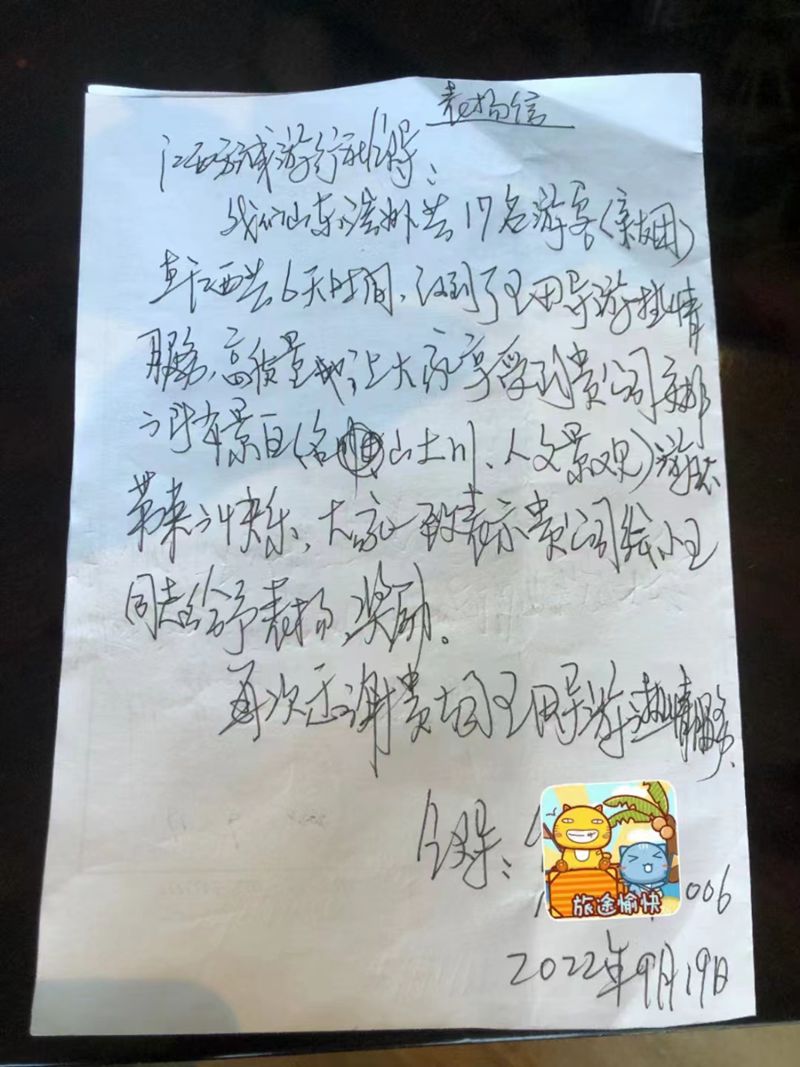 表扬信
江西 旅行社领导:
我们山东 共17名游客(亲友团)
来江西共6天时间,得到了王田导游热情
服务,高质量地让大家享受到贵公司安排
的 景区(名 山大川、人文景观)游玩
带来的快乐,大家一致表示贵公司给小王
同志给予表扬、奖励。
再次感谢贵公司王田导游热情服务.
领导:
旅途愉快
006
2022年9月19日